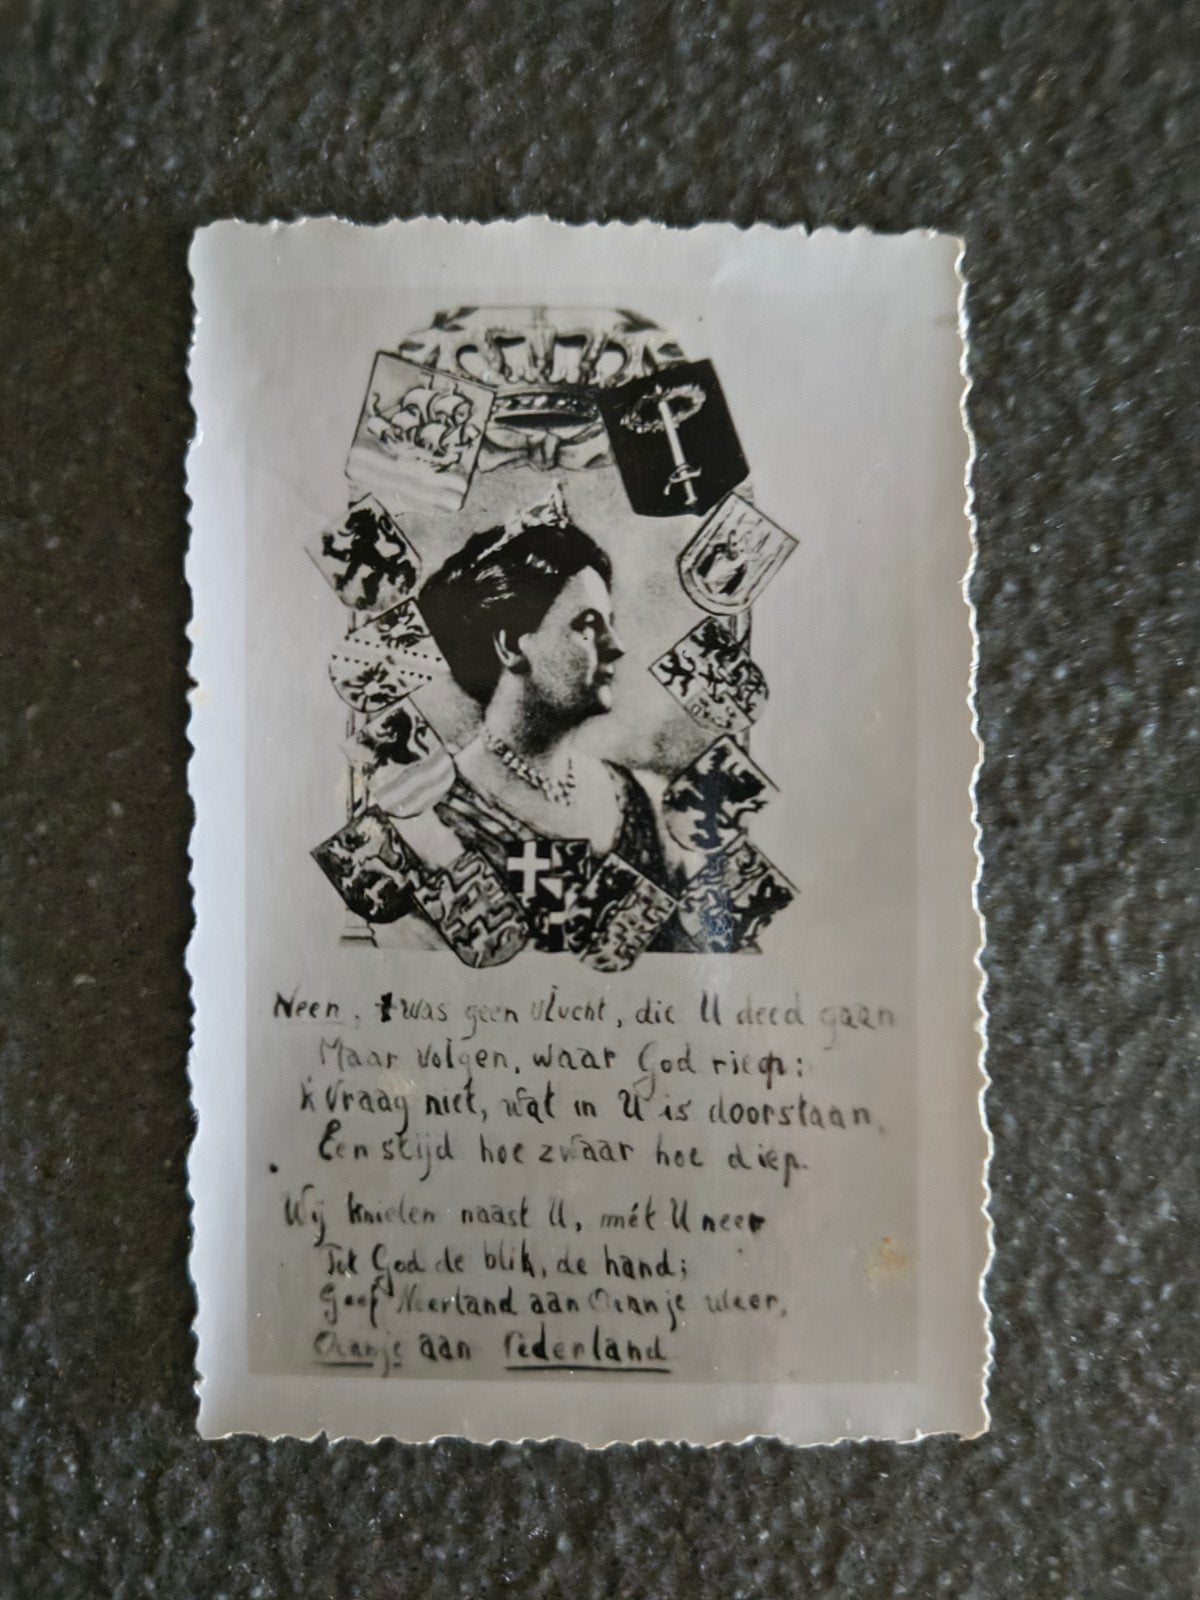 Neen, 't was geen vlucht, die U deed gaan
Maar volgen, waar God riep:
'k Vraag niet, wat in U is doorstaan,
Een stijd hoe zwaar hoe diep.
Wij knielen naast U, mét U neer
Tot God de blik, de hand;
Geef Neerland aan Oranje weer,
Oranje aan Nederland